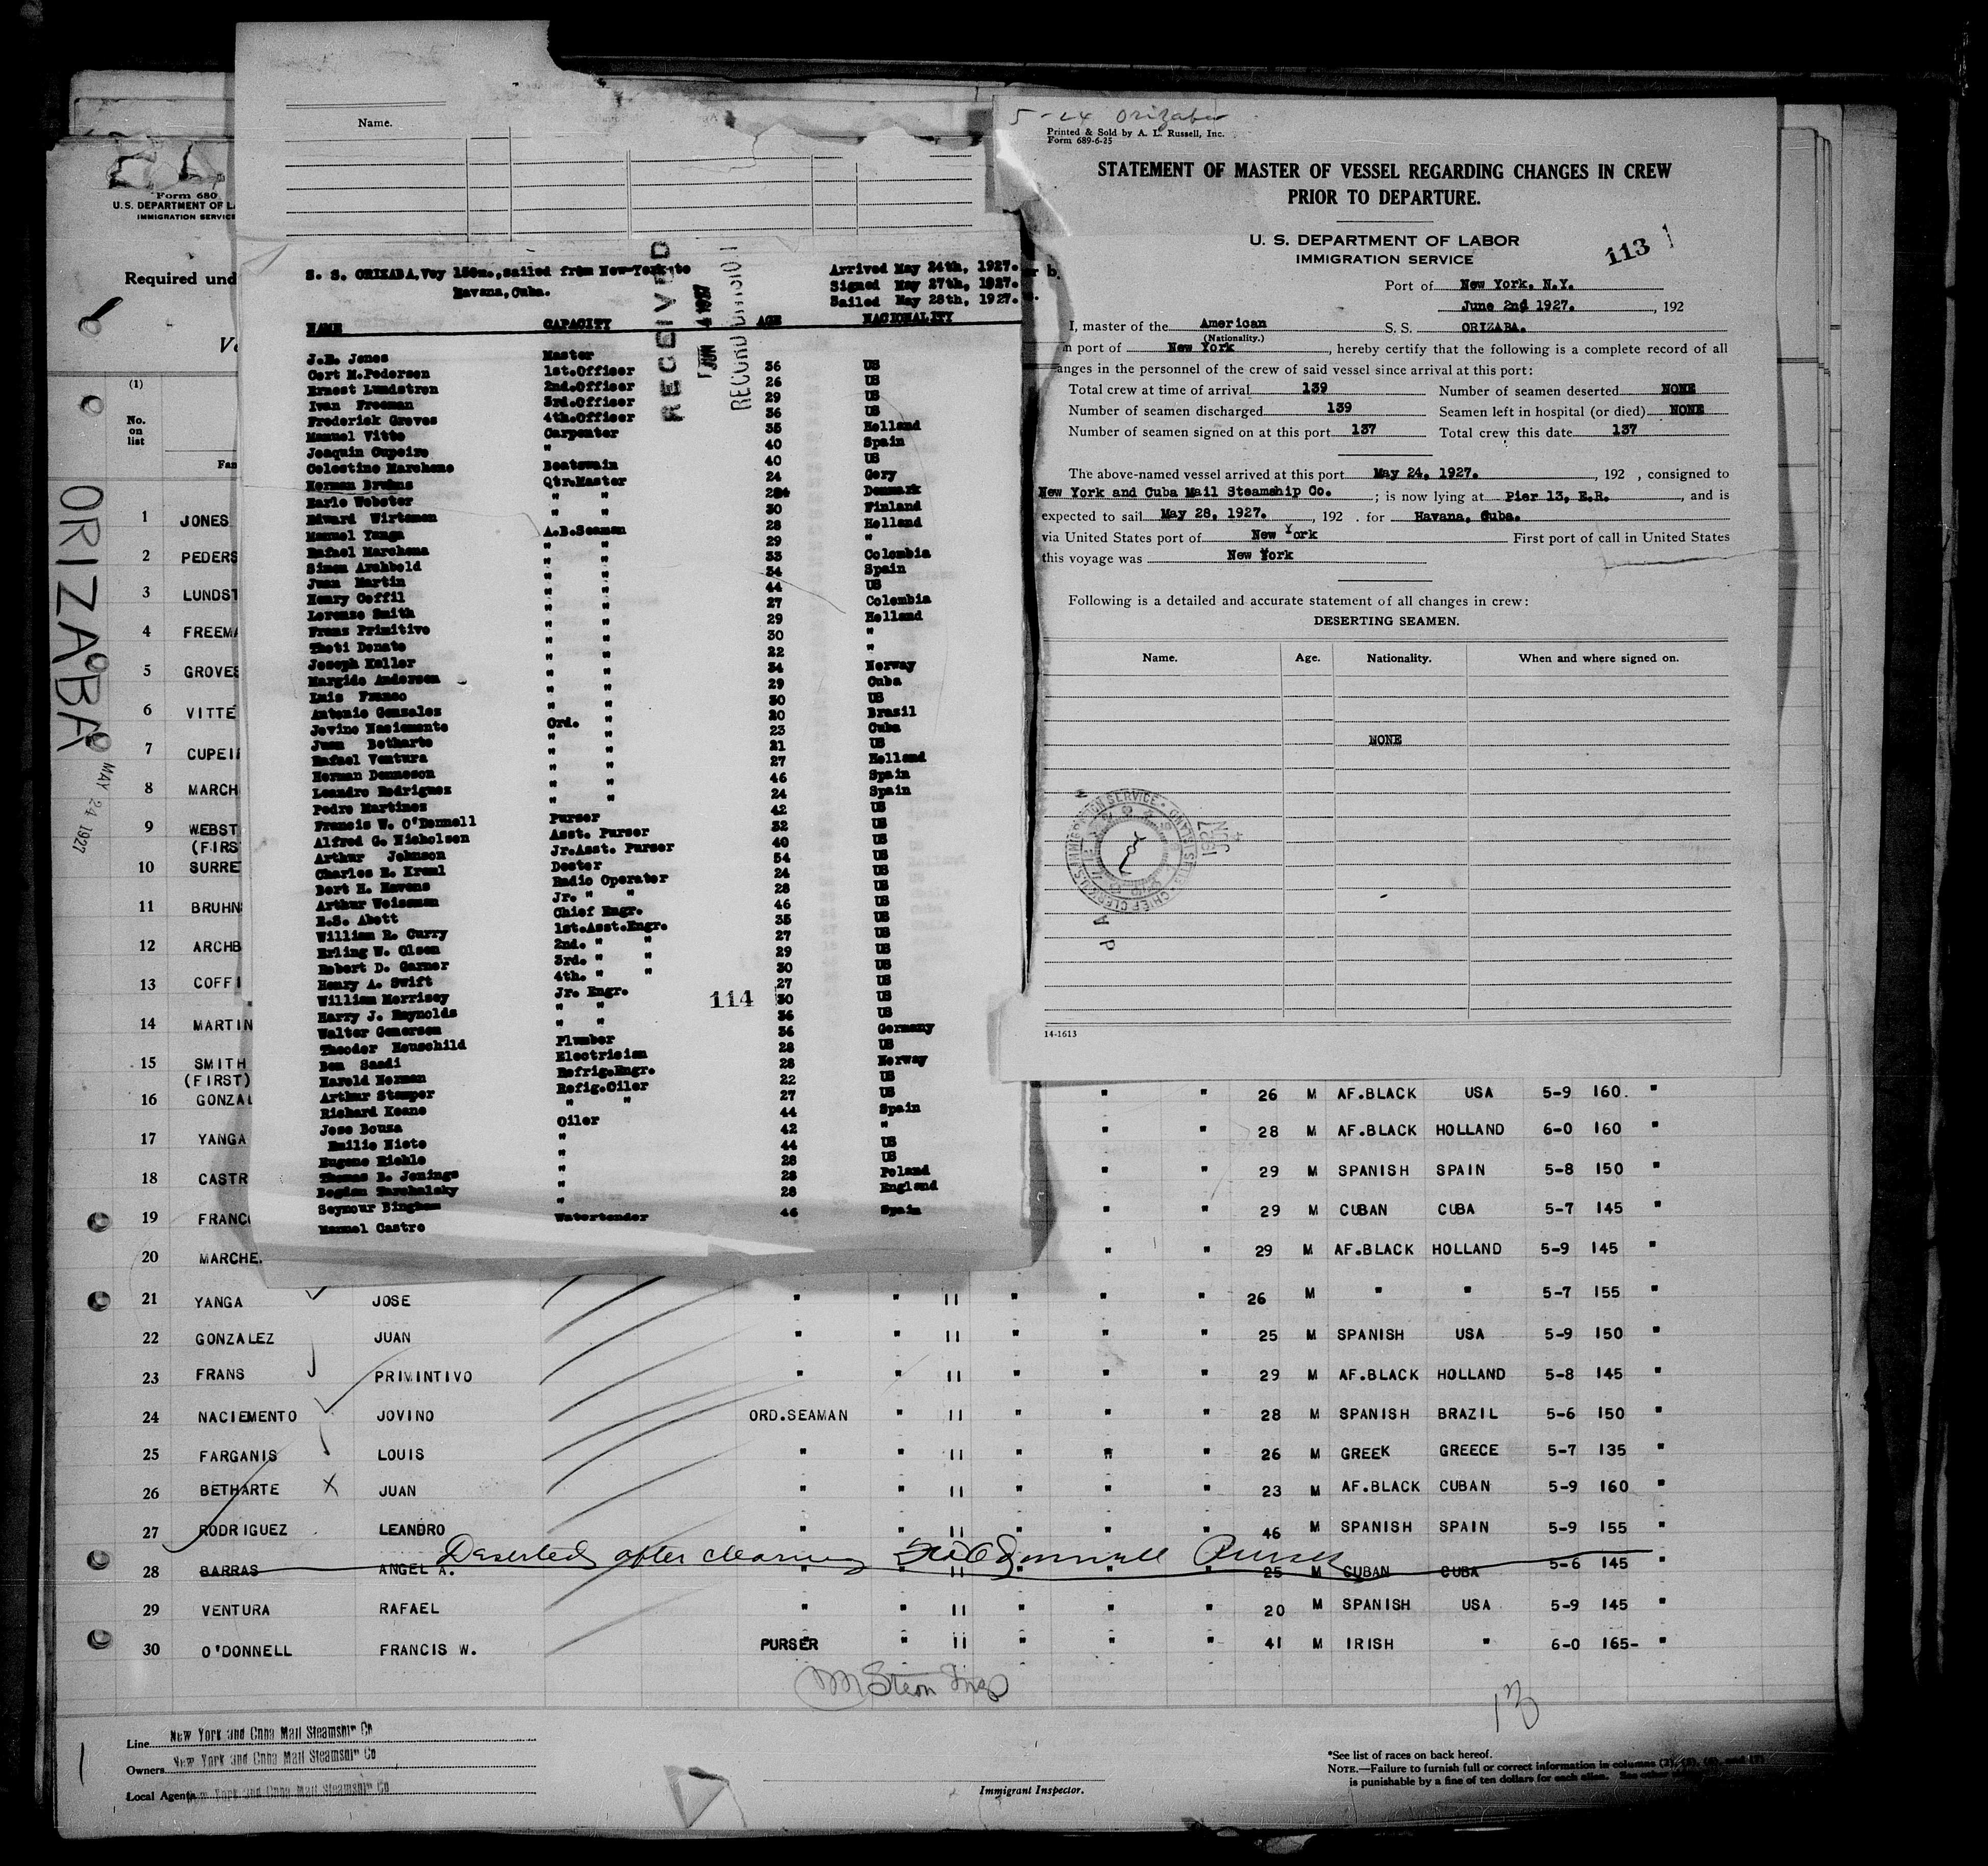 Name.
S. S. ORIZABA, Voy 150n., sailed from New-York to
Havana, Cuba.
Arrived May 24th, 1927.
Signed May 27th, 1927.
Sailed May 28th, 1927.
RECEIVED
JUN 4 1927
RECORD DIVISION
NAME CAPACITY AGE NACIONALITY
J.E. Jones Master 36 US
Cort M.Pedersen 1st.Officer 26 US
Ernest Lundstron 2nd.Officer 29 US
Ivan Freeman 3rd.Officer 36 US
Frederick Groves 4th.Officer 35 Holland
Manuel Vitto Carpenter 40 Spain
Joaquin Cupeiro " 40 US
Celestino Marchene Boatswain 24 Gery
Herman Bruhns Qtr.Master Denmark
Earle Webster " " 30 Finland
Edward Wirtsmen " " 28 Holland
Manuel Yanga A.B.Seamen 29 "
Rafael Marchena " " 33 Colombia
Simon Archbold " " 34 Spain
Juan Martin " " 44 US
Henry Coffil " " 27 Colombia
Lorenzo Smith " " 29 Holland
Frans Primitivo " " 30 "
Thoti Donato " " 22 "
Joseph Keller " " 34 Norway
Margido Andersen " " 29 Cuba
Luis Franco " " 30 US
Antonio Gonzales " " 20 Brazil
Jovino Nasiemento Ord. " 23 Cuba
Juan Betharte " " 21 US
Rafael Ventura " " 27 Holland
Herman Denneson " " 46 Spain
Leandro Rodriguez " " 24 Spain
Pedro Martinez " " 42 US
Francis W. O'Donnell Purser 32 US
Alfred G. Nicholsen Asst. Purser 40 US
Arthur Johnson Jr.Asst. Purser 54 US
Charles E. Kreml Doctor 24 US
Bert H. Havens Radio Operator 28 US
Arthur Weissman Jr. " " 46 US
E.S. Abett Chief Engr. 35 US
William R. Curry 1st.Asst.Engr. 27 US
Erling W. Olsen 2nd. " " 29 US
Robert D. Garner 3rd. " " 30 US
Henry A. Swift 4th. " " 27 US
William Morrisey Jr. Engr. 30 US
Harry J. Raynolds " " 36 US
Walter Gemersen " " 36 Germany
Theodor Heuschild Plumber 28 US
Ben Saadi Electrician 28 Norway
Harold Norman Refrig.Engr. 22 US
Arthur Stamper Refig.Oiler 27 US
Richard Keane " " 44 Spain
Jose Bouza Oiler 42 "
Emilio Nieto " 44 US
Eugene Riehle " 28 US
Thomas B. Jenings " 28 Poland
Bogdan Tarchalsky " 28 England
Seymour Bingham " 46 Spain
Manuel Castro Watertender
114
5-24 Orizaba
Printed & Sold by A. L. Russell, Inc.
Form 689-6-25
STATEMENT OF MASTER OF VESSEL REGARDING CHANGES IN CREW
PRIOR TO DEPARTURE.
U. S. DEPARTMENT OF LABOR
IMMIGRATION SERVICE
113
Port of New York, N.Y.
June 2nd 1927. , 192
I, master of the American S. S. ORIZABA.
(Nationality.)
m port of New York , hereby certify that the following is a complete record of all
anges in the personnel of the crew of said vessel since arrival at this port:
Total crew at time of arrival 139 Number of seamen deserted NONE
Number of seamen discharged 139 Seamen left in hospital (or died) NONE
Number of seamen signed on at this port 137 Total crew this date 137
The above-named vessel arrived at this port May 24, 1927. , 192 , consigned to
New York and Cuba Mail Steamship Co. ; is now lying at Pier 13, E.R. , and is
expected to sail May 28, 1927. , 192 . for Havana, Cuba.
via United States port of New York First port of call in United States
this voyage was New York
Following is a detailed and accurate statement of all changes in crew:
DESERTING SEAMEN.
Name. Age. Nationality. When and where signed on.
NONE
14-1613
Form 680
U. S. DEPARTMENT OF L
IMMIGRATION SERVICE
Required und
(1)
No.
on
list
Fam
ORIZABA
MAY 24 1927
1 JONES
2 PEDERS
3 LUNDST
4 FREEMA
5 GROVES
6 VITTE
7 CUPEI
8 MARCH
9 WEBST
(FIRS
10 SURRE
11 BRUHN
12 ARCHB
13 COFFI
14 MARTIN
15 SMITH
(FIRST)
16 GONZAL " " 26 M AF.BLACK USA 5-9 160. "
17 YANGA " " 28 M AF.BLACK HOLLAND 6-0 160 "
18 CASTR " " 29 M SPANISH SPAIN 5-8 150 "
19 FRANC " " 29 M CUBAN CUBA 5-7 145 "
20 MARCHE. " " 29 M AF.BLACK HOLLAND 5-9 145 "
21 YANGA JOSE " " 11 " " " 26 M " " 5-7 155 "
22 GONZALEZ JUAN " " 11 " " " 25 M SPANISH USA 5-9 150 "
23 FRANS PRIMINTIVO " " 11 " " " 29 M AF.BLACK HOLLAND 5-8 145 "
24 NACIEMENTO JOVINO ORD.SEAMAN " 11 " " " 28 M SPANISH BRAZIL 5-6 150 "
25 FARGANIS LOUIS " " 11 " " " 26 M GREEK GREECE 5-7 135 "
26 BETHARTE X JUAN " " 11 " " " 23 M AF.BLACK CUBAN 5-9 160 "
27 RODRIGUEZ LEANDRO " " 11 " " " 46 M SPANISH SPAIN 5-9 155 "
Deserted after clearing O'Donnell Purser
28 BARRAS ANGEL A. " " 11 " " " 25 M CUBAN CUBA 5-6 145
29 VENTURA RAFAEL " " 11 " " " 20 M SPANISH USA 5-9 145 "
30 O'DONNELL FRANCIS W. PURSER " 11 " " " 41 M IRISH " 6-0 165- "
13
Line New York and Cuba Mail Steamship Co
Owners New York and Cuba Mail Steamship Co
Local Agents New York and Cuba Mail Steamship Co
Immigrant Inspector.
*See list of races on back hereof.
NOTE.—Failure to furnish full or correct information in columns
is punishable by a fine of ten dollars for each alien.